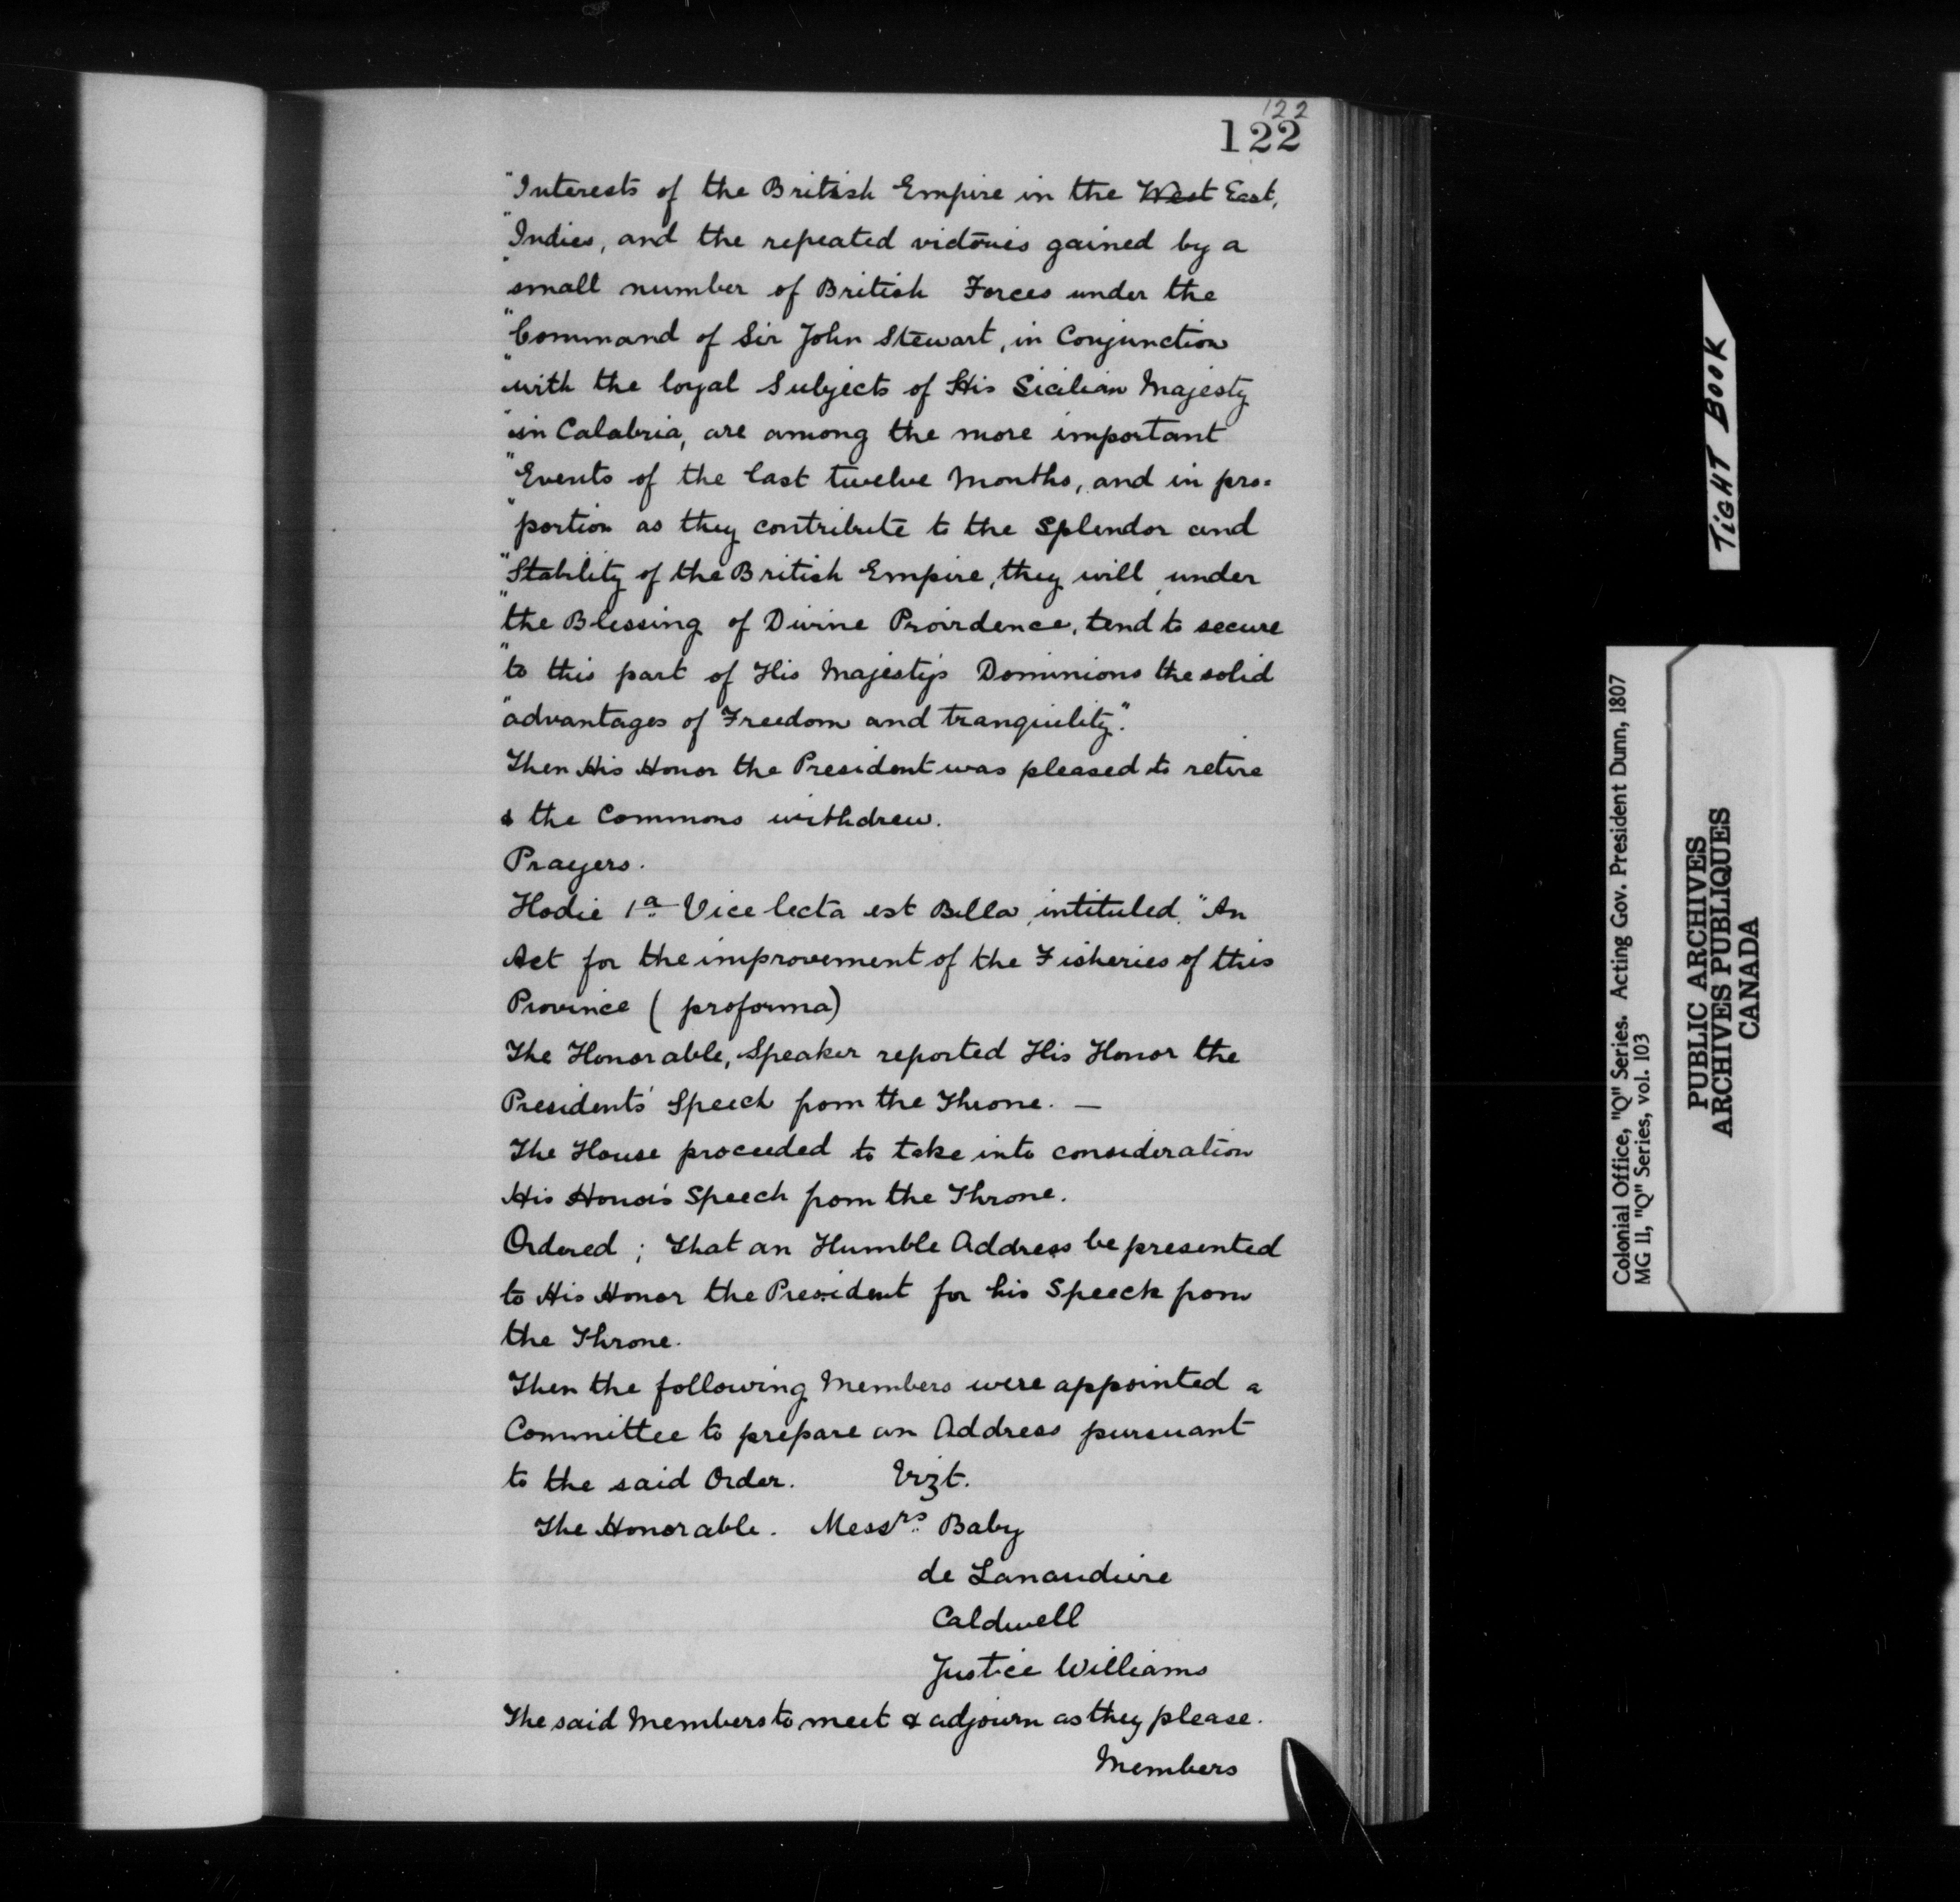 122
122
"Interests of the British Empire in the West East,
"Indies, and the repeated victories gained by a
"small number of British Forces under the
"Command of Sir John Stewart, in Conjunction
"with the loyal Subjects of His Sicilian Majesty
"in Calabria, are among the more important
"Events of the last twelve Months, and in pro=
"portion as they contribute to the Splendor and
"Stability of the British Empire, they will, under
"the Blessing of Divine Providence, tend to secure
"to this part of His Majesty's Dominions the solid
"advantages of Freedom and tranquility".
Then His Honor the President was pleased to retire
& the Commons withdrew.
Prayers.
Hodie 1a Vice lecta est Billa, intituled, "An
Act for the improvement of the Fisheries of this
Province ( proforma)
The Honorable, Speaker reported His Honor the
Presidents' Speech from the Throne. —
The House proceeded to take into consideration
His Honor's Speech from the Throne.
Ordered ; That an Humble Address be presented
to His Honor the President for his Speech from
the Throne.
Then the following Members were appointed a
Committee to prepare an Address pursuant
to the said Order. Vizt.
The Honorable. Messrs. Baby
de Lanaudiere
Caldwell
Justice Williams
The said Members to meet & adjourn as they please.
Members
TIGHT BOOK
Colonial Office, "Q" Series. Acting Gov. President Dunn, 1807
MG 11, "Q" Series, vol. 103
PUBLIC ARCHIVES
ARCHIVES PUBLIQUES
CANADA